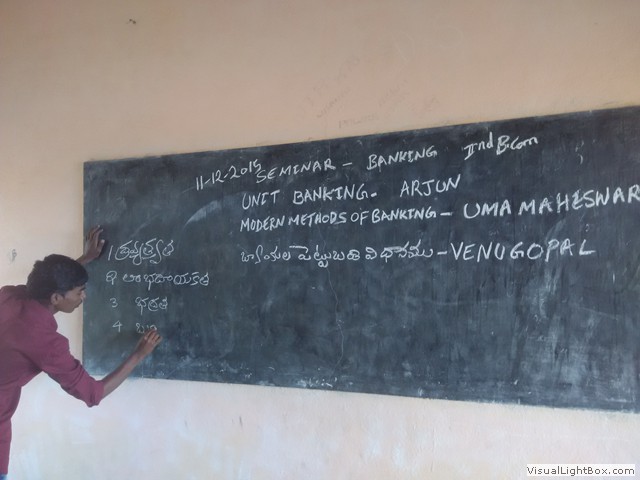 11-12-2015 SEMINAR - BANKING IInd BCom
UNIT BANKING - ARJUN
MODERN METHODS OF BANKING - UMA MAHESWAR
బ్యాంకుల పెట్టుబడి విధానము - VENUGOPAL
1 ద్రవ్యత్వత
2 లాభదాయకత
3 భద్రత
4
VisualLightBox.com